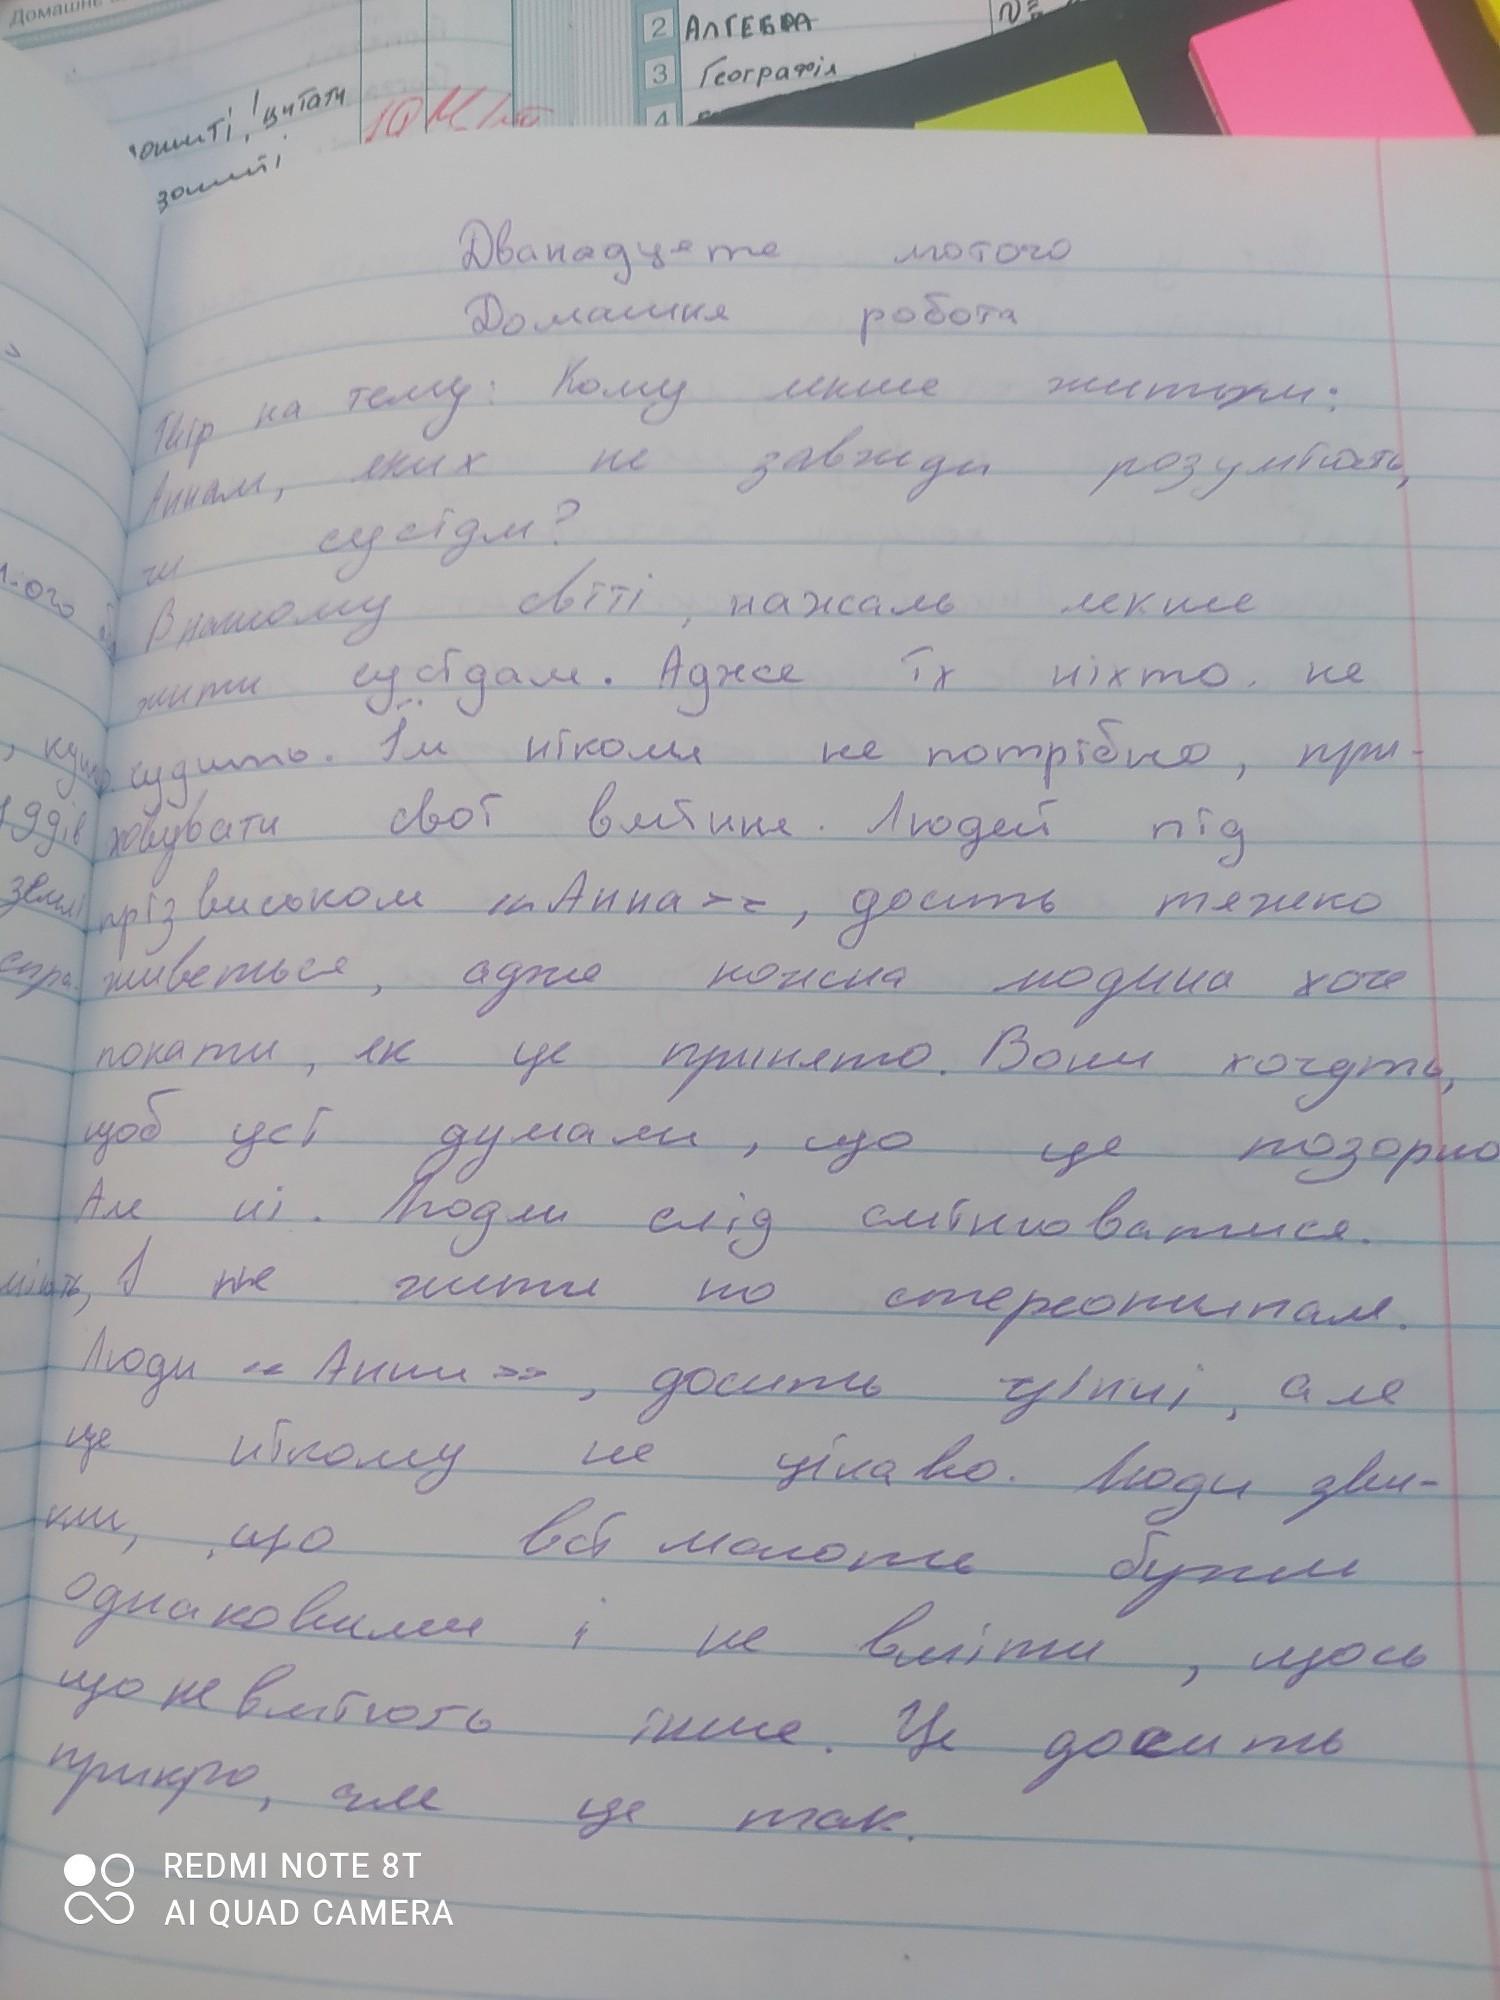 Домашнє
2 АЛГЕБРА
3 Географія
4
зошиті, цитати
зошиті
Дванадцяте лютого
Домашня робота
Твір на тему: Кому лекше жити:
Аннам, яких не завжди розуміють,
чи сусідм?
В нашому світі, нажаль лекше
жити сусідам. Адже їх ніхто не
судить. Їм ніколи не потрібно, при-
ховувати свої вміння. Людей під
прізвиськом "Анна", досить тяжко
живеться, адже кожна людина хоче
покати, як це принято. Вони хочуть,
щоб усі думали, що це позорно
Але ні. Людям слід смінюватися.
І не жити по стереотипам.
Люди "Анни", досить цінні, але
це нікому не цікаво. Люди зви-
кли, що всі мають бути
однаковими і не вміти, щось
що не вміють інше. Це досить
прикро, але це так.
REDMI NOTE 8T
AI QUAD CAMERA